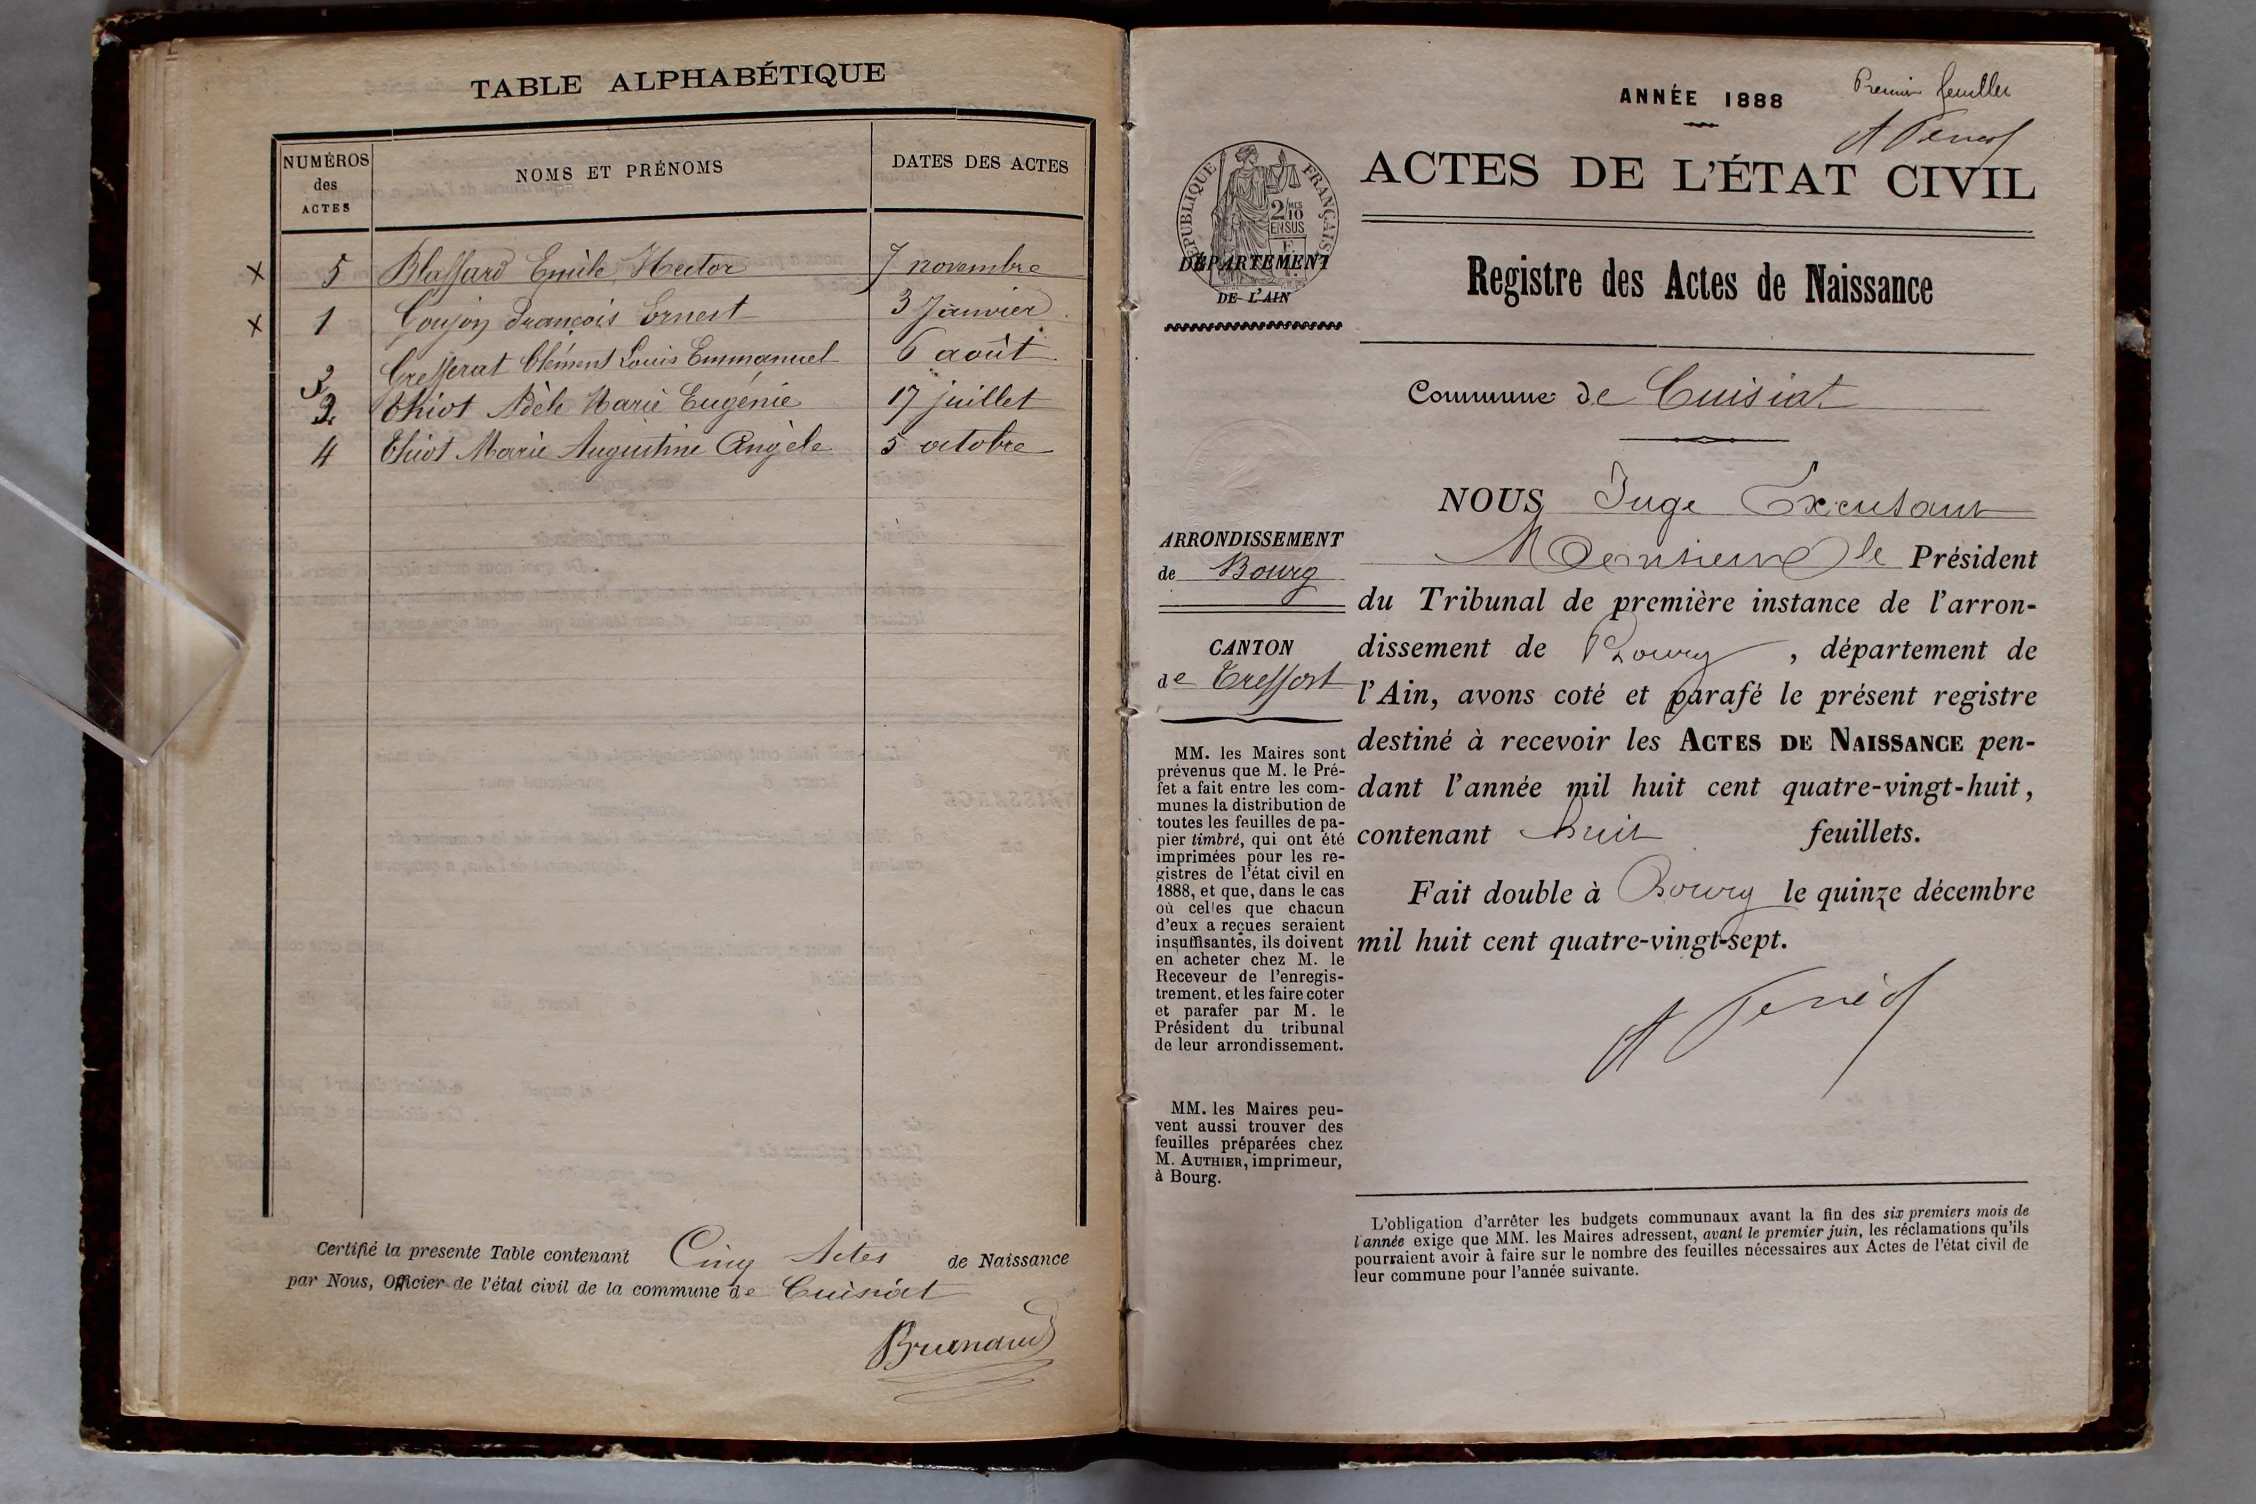 TABLE ALPHABÉTIQUE
NUMÉROS
des
ACTES
NOMS ET PRÉNOMS
DATES DES ACTES
x 5 Blassard Emile Hector 7 novembre
x 1 Goujon François Ernest 3 Janvier
3 Cresserat Clément Louis Emmanuel 6 août
2 Thiot Adèle Marie Eugénie 17 juillet
4 Thiot Marie Augustine Angèle 5 octobre
Certifié la presente Table contenant Cinq Actes de Naissance
par Nous, Officier de l'état civil de la commune de Cuisiat
Brunand
ANNÉE 1888
Premier feuillet
ACTES DE L'ÉTAT CIVIL
RÉPUBLIQUE FRANÇAISE
2/10
EN SUS
DÉPARTEMENT
DE L'AIN
Registre des Actes de Naissance
Commune de Cuisiat
ARRONDISSEMENT
de Bourg
CANTON
de Treffort
MM. les Maires sont
prévenus que M. le Pré-
fet a fait entre les com-
munes la distribution de
toutes les feuilles de pa-
pier timbré, qui ont été
imprimées pour les re-
gistres de l'état civil en
1888, et que, dans le cas
où celles que chacun
d'eux a reçues seraient
insuffisantes, ils doivent
en acheter chez M. le
Receveur de l'enregis-
trement, et les faire coter
et parafer par M. le
Président du tribunal
de leur arrondissement.
MM. les Maires peu-
vent aussi trouver des
feuilles préparées chez
M. AUTHIER, imprimeur,
à Bourg.
NOUS Juge Excusant
Monsieur le Président
du Tribunal de première instance de l'arron-
dissement de Bourg, département de
l'Ain, avons coté et parafé le présent registre
destiné à recevoir les ACTES DE NAISSANCE pen-
dant l'année mil huit cent quatre-vingt-huit,
contenant huit feuillets.
Fait double à Bourg le quinze décembre
mil huit cent quatre-vingt-sept.
L'obligation d'arrêter les budgets communaux avant la fin des six premiers mois de
l'année exige que MM. les Maires adressent, avant le premier juin, les réclamations qu'ils
pourraient avoir à faire sur le nombre des feuilles nécessaires aux Actes de l'état civil de
leur commune pour l'année suivante.